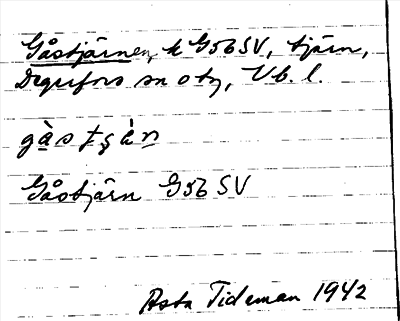 Gåstjärnen, k G56SV, tjärn,
Degerfors sn o tg, Vb. l.
gås
Gåstjärn G56 SV
Asta Tideman 1942